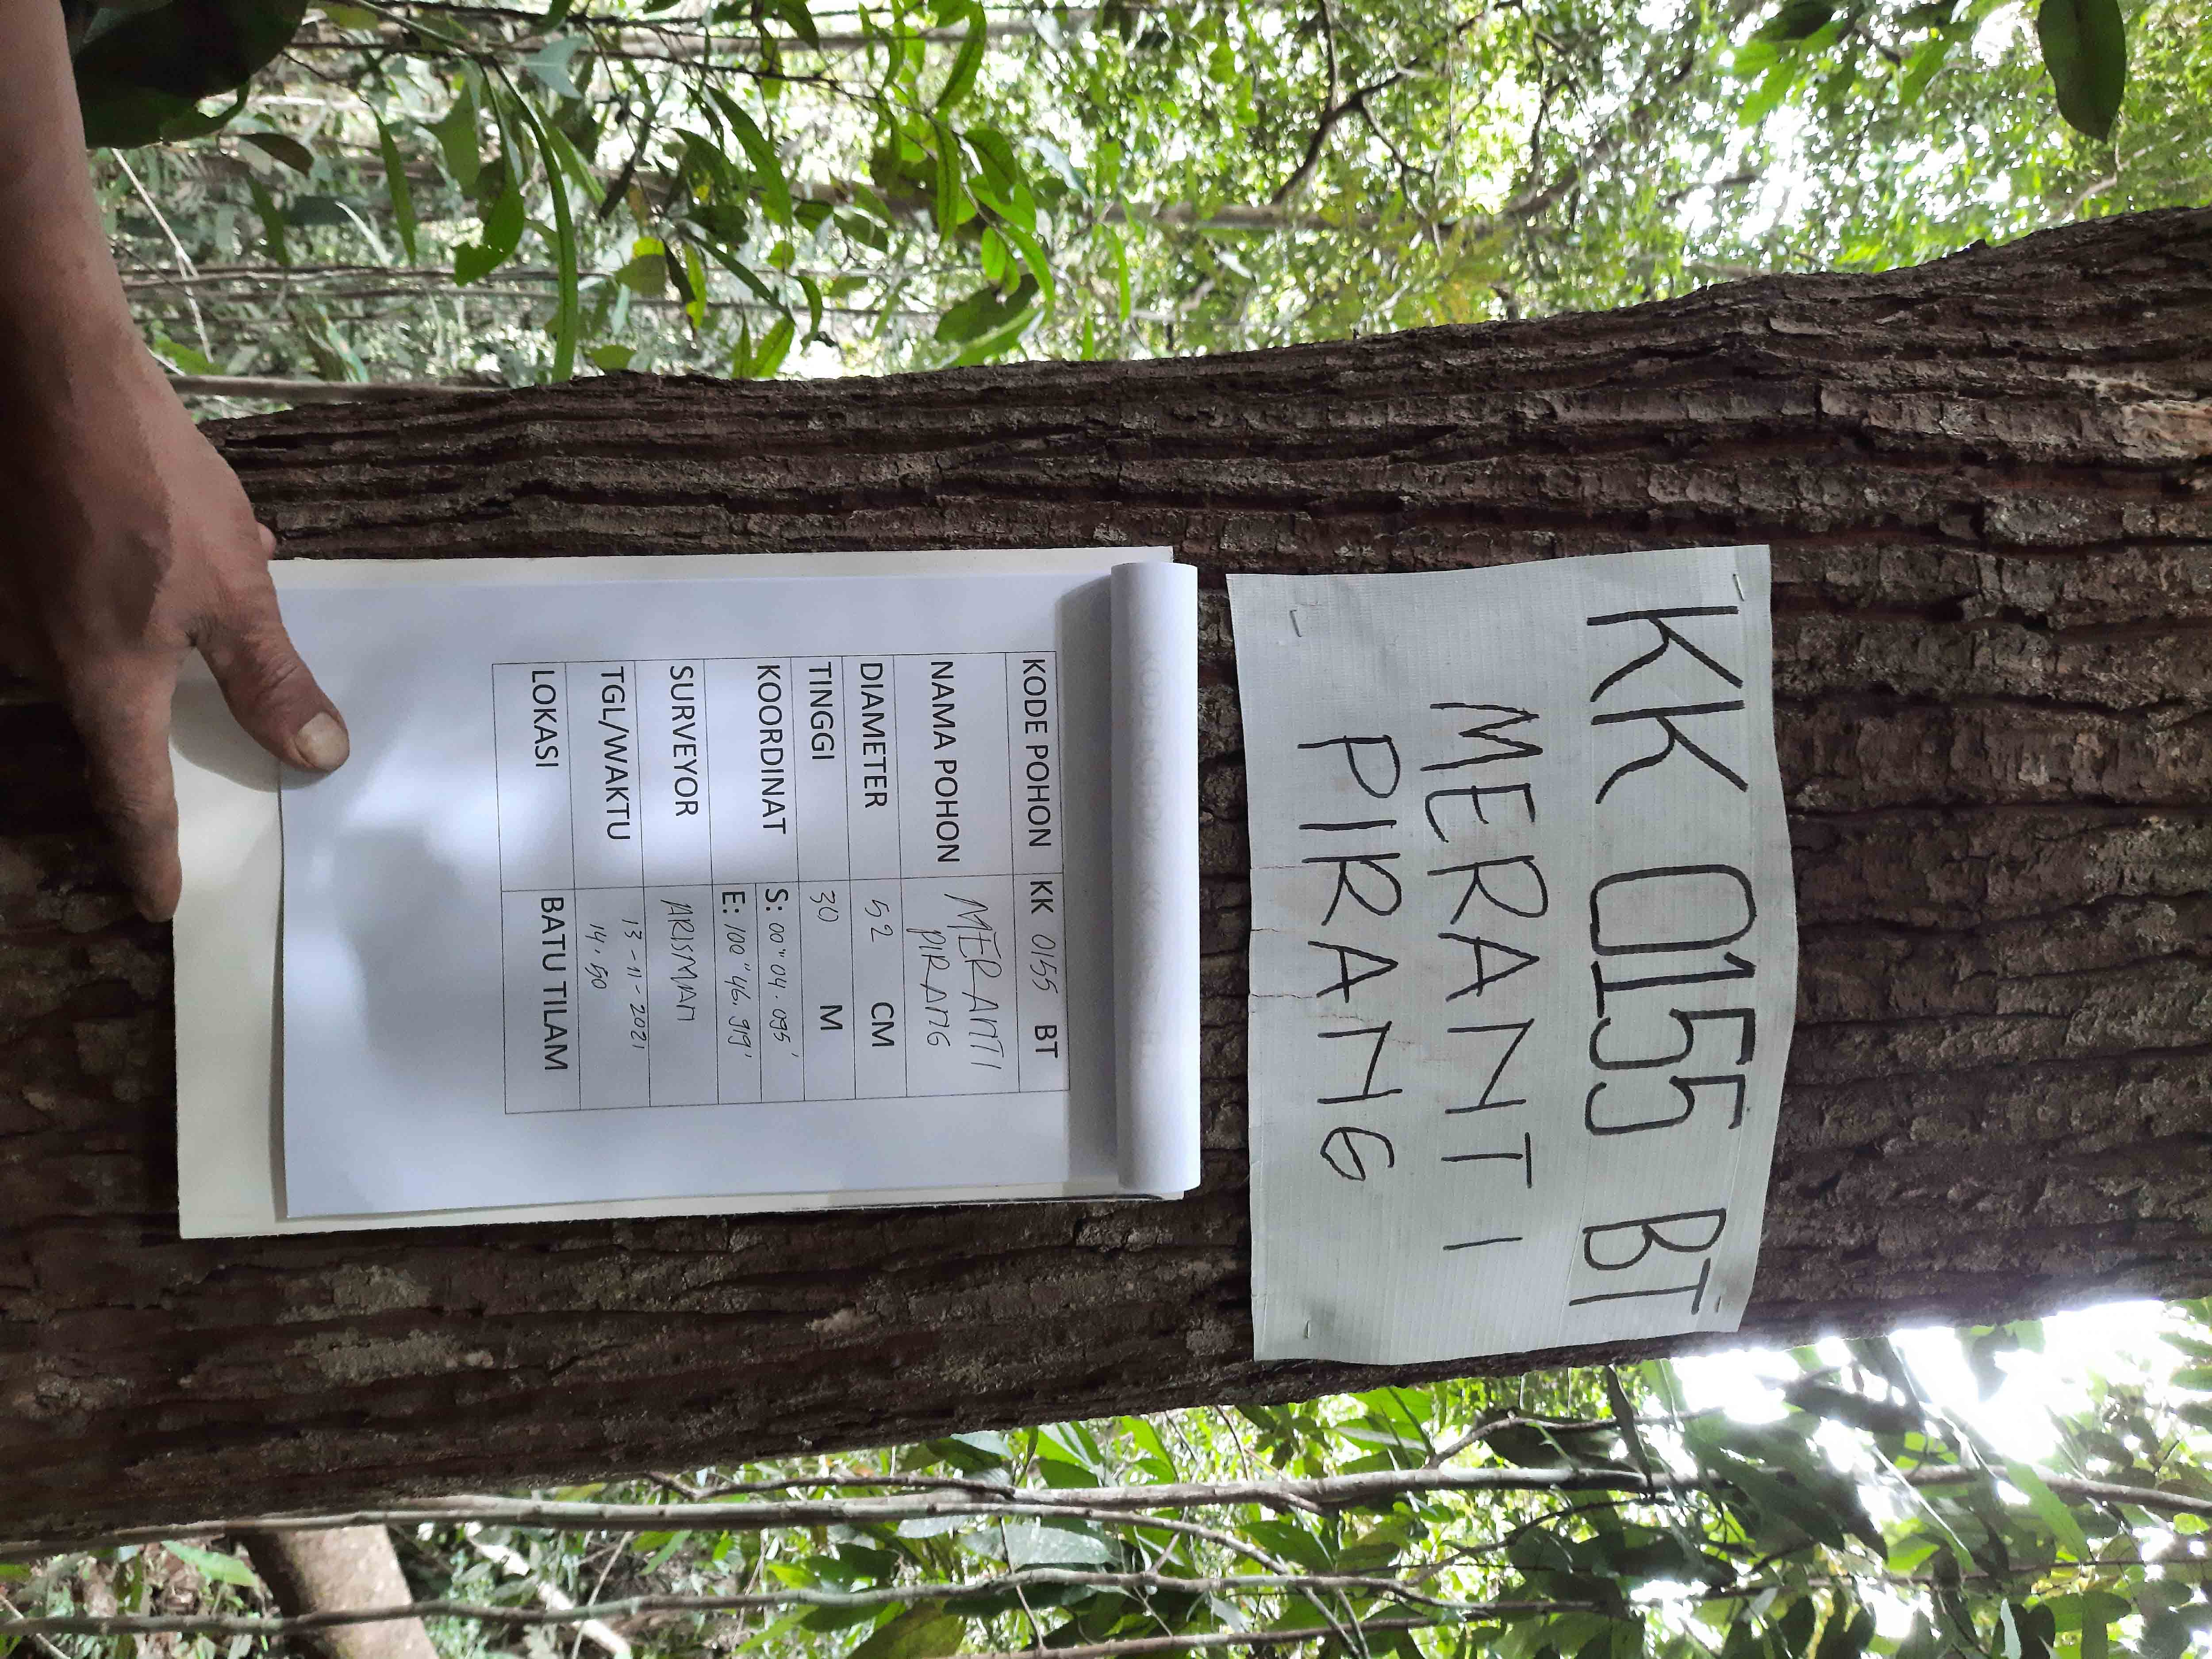 KK 0155 BT
MERANTI
PIRANG
KODE POHON KK 0155 BT
NAMA POHON MERANTI
PIRANG
DIAMETER 52 CM
TINGGI 30 M
KOORDINAT S: 00" 04. 095'
E: 100" 46. 919'
SURVEYOR ARISMAN
TGL/WAKTU 13-11-2021
14.50
LOKASI BATU TILAM